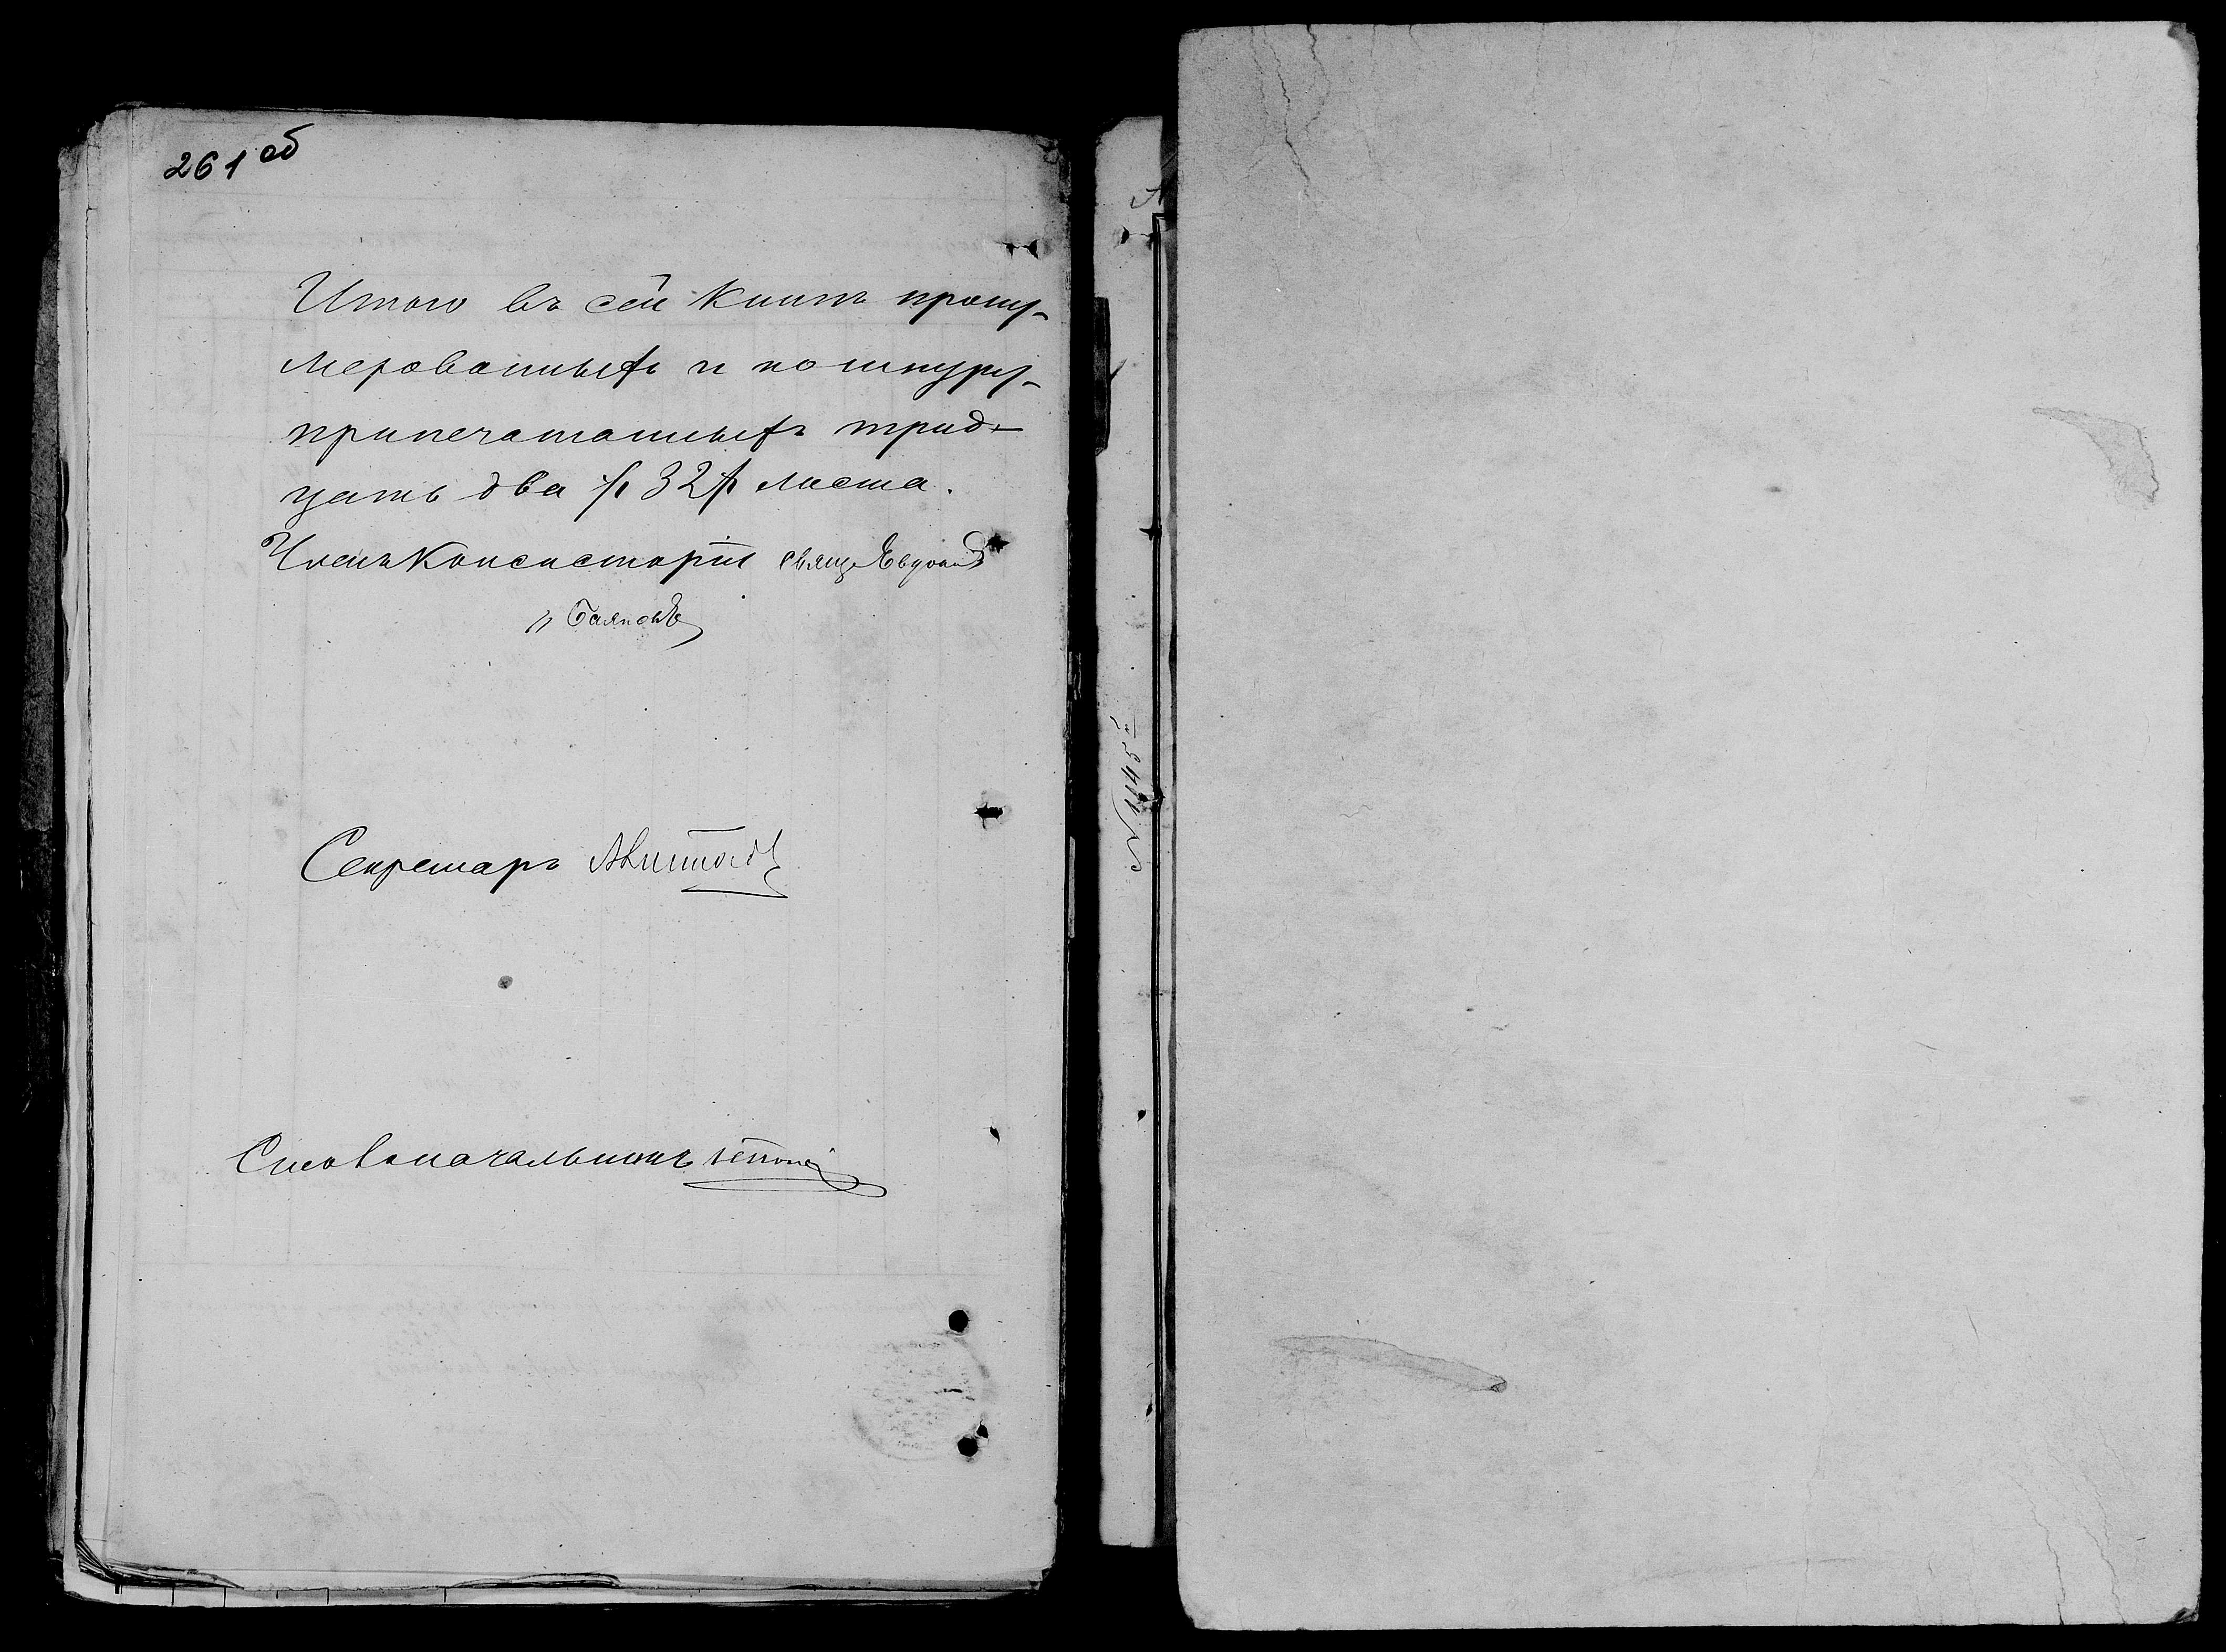 261 об
Итого въ сей книгѣ прону-
мерованныхъ и по шнуру-
припечатанныхъ трид-
цать два /:32:/ листа.
Членъ Консисторіи свящ. Евдоким
Секретарь
Столоначальникъ
N 1445